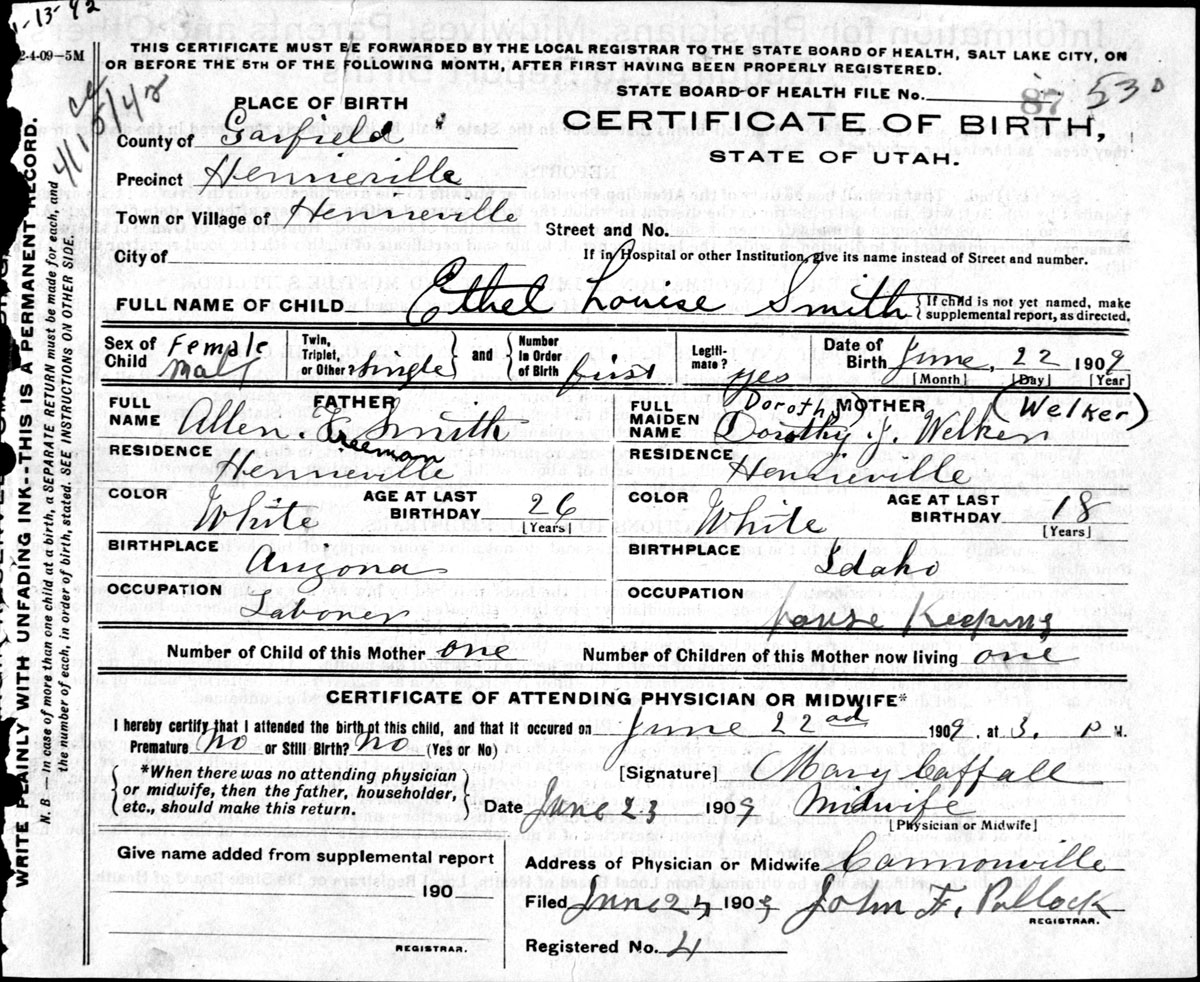 -13-42
2-4-09—5M
THIS CERTIFICATE MUST BE FORWARDED BY THE LOCAL REGISTRAR TO THE STATE BOARD OF HEALTH, SALT LAKE CITY, ON
OR BEFORE THE 5TH OF THE FOLLOWING MONTH, AFTER FIRST HAVING BEEN PROPERLY REGISTERED.
STATE BOARD OF HEALTH FILE No. 87 530
4/15/48
PLACE OF BIRTH
CERTIFICATE OF BIRTH,
STATE OF UTAH.
County of Garfield
Precinct Henrieville
Town or Village of Henrieville
Street and No.
City of
If in Hospital or other Institution, give its name instead of Street and number.
FULL NAME OF CHILD Ethel Louise Smith { If child is not yet named, make supplemental report, as directed.
Sex of Child Female Male Twin, Triplet, or Other single and Number in Order of Birth first Legitimate? yes Date of Birth June 22 1909
[Month] [Day] [Year]
FATHER
FULL NAME Allen F. Smith
Freeman
MOTHER
Dorothy (Welker)
FULL MAIDEN NAME Dorothy J. Welker
RESIDENCE Henrieville
RESIDENCE Henrieville
COLOR White AGE AT LAST BIRTHDAY 26 [Years]
COLOR White AGE AT LAST BIRTHDAY 18 [Years]
BIRTHPLACE Arizona
BIRTHPLACE Idaho
OCCUPATION Laborer
OCCUPATION House Keeping
Number of Child of this Mother one Number of Children of this Mother now living one
CERTIFICATE OF ATTENDING PHYSICIAN OR MIDWIFE*
I hereby certify that I attended the birth of this child, and that it occured on June 22nd 1909, at 3. P M.
Premature No or Still Birth? No (Yes or No)
{ *When there was no attending physician or midwife, then the father, householder, etc., should make this return. }
[Signature] Mary Caffall
Date June 23 1909 Midwife
[Physician or Midwife]
Give name added from supplemental report
190
REGISTRAR.
Address of Physician or Midwife Cannonville
Filed June 1909 John F. Pollock
REGISTRAR.
Registered No. 4
WRITE PLAINLY WITH UNFADING INK--THIS IS A PERMANENT RECORD.
N. B.—In case of more than one child at a birth, a SEPARATE RETURN must be made for each, and
the number of each, in order of birth, stated. SEE INSTRUCTIONS ON OTHER SIDE.